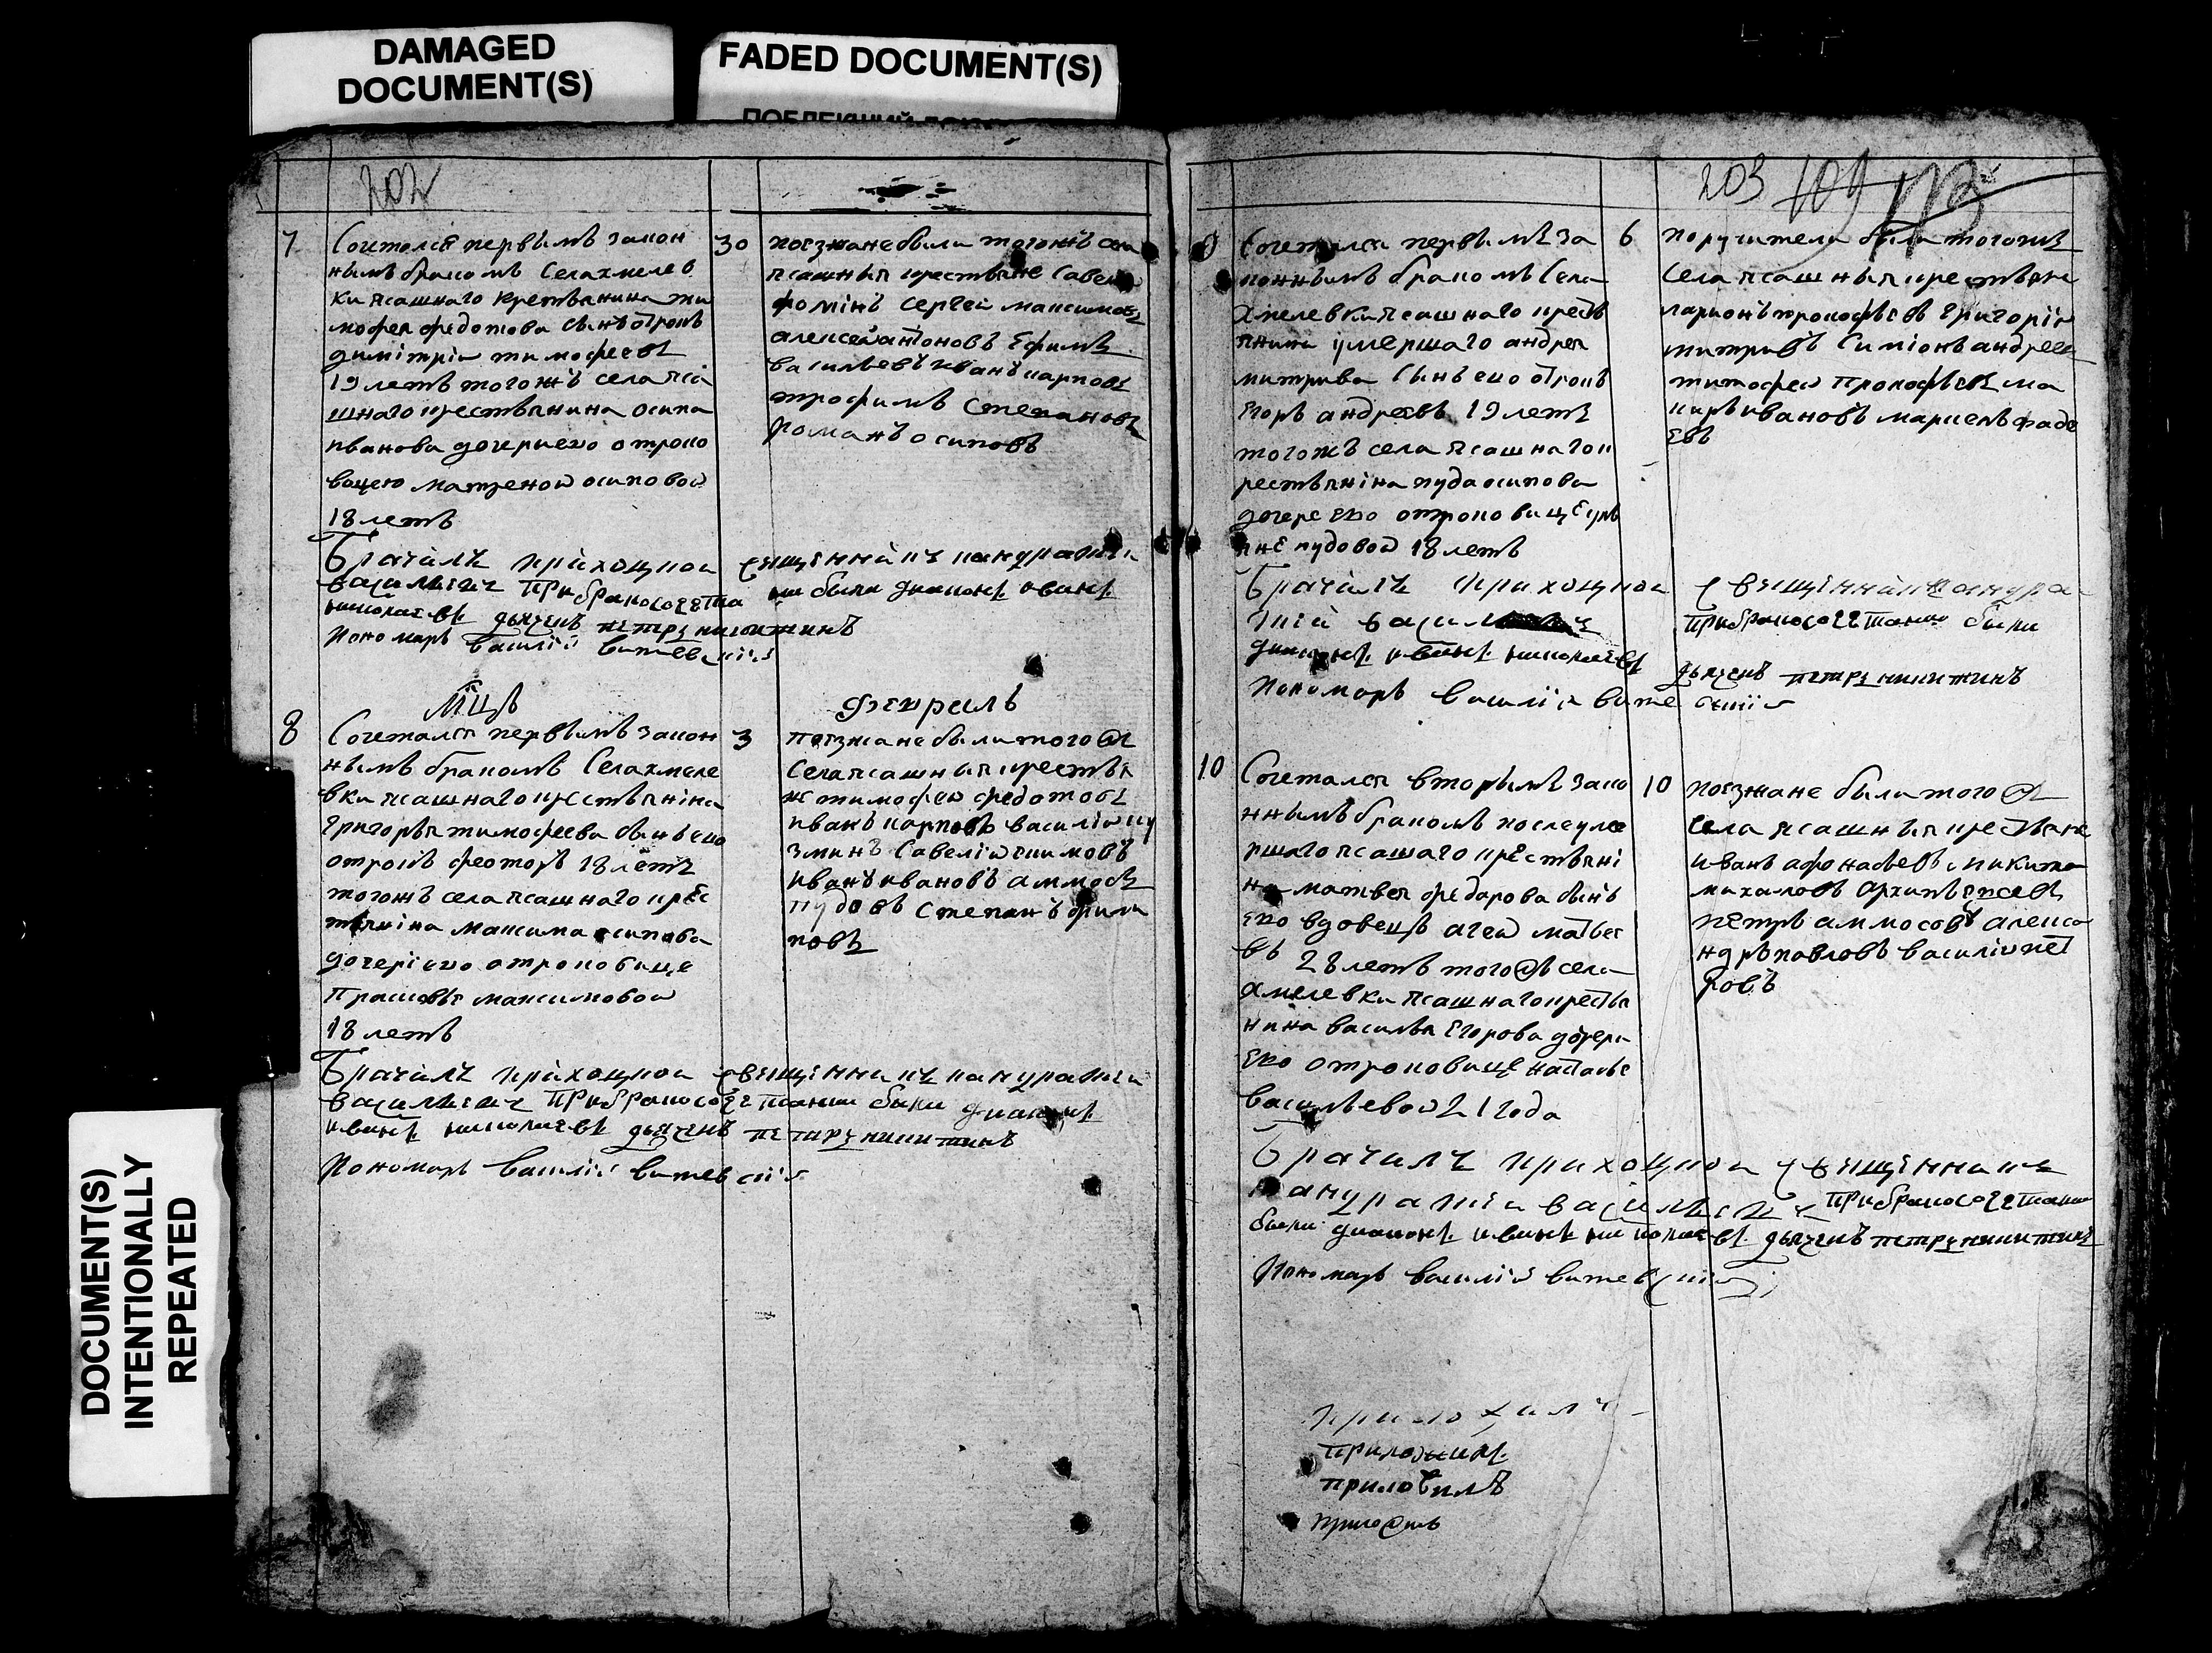 DAMAGED
DOCUMENT(S)
FADED DOCUMENT(S)
DOCUMENT(S)
INTENTIONALLY
REPEATED
202
7
Сочетался первымъ закон
нымъ бракомъ Села хмелев
ки ясашнаго крестьянина ти
мофея федотова сынъ отрокъ
димітріи тимофеевъ
19 летъ тогожъ села яса
шнаго крестьянина осипа
иванова дочерью ево отроко
вицею матреной осиповой
18 летъ
30
поезжане были тогожъ села
ясашныя крестьяне савел
фоминъ сергей максимовъ
алексей антоновъ Ефимъ
васильевъ иванъ карповъ
трофимъ степановъ
романъ осиповъ
Брачалъ приходцкои священникъ
васильевъ при бракосочета
нии были диаконъ иванъ
николаевъ дьячекъ петръ никитинъ
пономарь василіи витевскіи
Мцъ
февраль
8
Сочетался первымъ закон
нымъ бракомъ Села хмеле
вки ясашнаго крестьяніна
григорья тимофеева сынъ ево
отрокъ феоторъ 18 летъ
тогожъ села ясашнаго крес
тьяніна максима осипова
дочерію ево отроковице
Прасковья максимовой
18 летъ
3
поезжане были того ж
Села ясашныя крестья
не тимофей федотовъ
иванъ карповъ василій ку
зминъ савелій екимовъ
иванъ ивановъ аммосъ
пудовъ степанъ фили
повъ
Брачалъ приходцкои священникъ
васильевъ при бракосочетании были диаконъ
иванъ николаевъ дьячекъ петръ никитинъ
Пономарь василіи витевскіи
203 109 113
9
Сочетался первымъ за
коннымъ бракомъ Села
хмелевки ясашнаго кресть
янина умершаго андрея
митрива сынъ ево отрокъ
Егоръ андревъ 19 летъ
тогожъ села ясашнаго к
рестьяніна пуда осипова
дочере ево отроковице
пудовой 18 летъ
6
поручители были тогожъ
села ясашныя крестьяне
ларионъ прокофьевъ григоріи
митривъ симіонъ андреев
тимофей прокофьевъ ма
каръ ивановъ маркелъ фаде
евъ
Брачалъ приходцкои священникъ
при бракосочетании были
диаконъ иванъ николаевъ
дьячекъ петръ никитинъ
Пономарь василіи витевскіи
10
Сочетался вторымъ зако
ннымъ бракомъ после уме
ршаго ясашаго крестьяні
на матвея федарова сынъ
ево вдовецъ агей матве
въ 28 летъ того ж села
хмелевки ясашнаго крестья
нина василья Егорова дочери
ево отроковице настасье
васильевой 21 года
10
поезжане были того ж
села ясашныя крестьяне
иванъ афонасьевъ никита
михаиловъ архипъ
петръ аммосовъ алекса
ндръ павловъ василій пет
ровъ
Брачалъ приходцкои священникъ
при бракосочетании
были диаконъ иванъ николаевъ дьячекъ петръ никитинъ
Пономарь василіи витевскіи
приложилъ
приложилъ
приложилъ
приложилъ